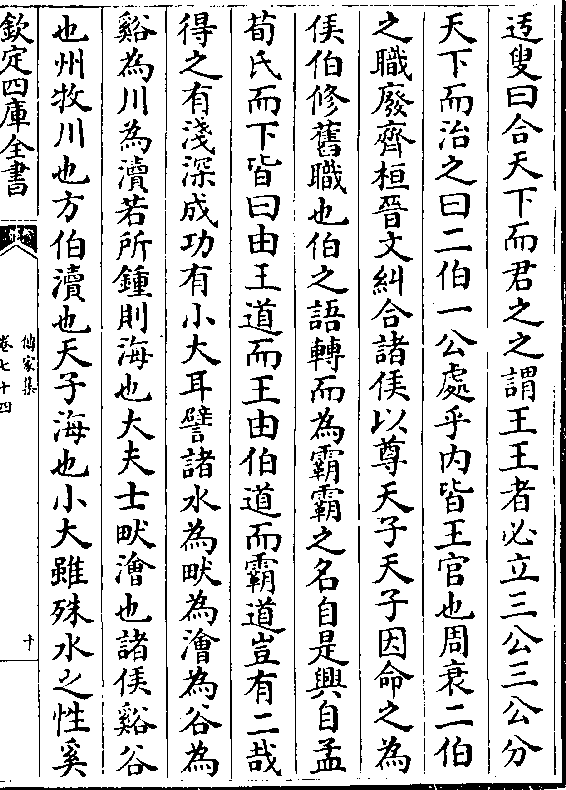 迃叟曰合天下而君之之謂王王者必立三公三公分
天下而治之曰二伯一公處乎内皆王官也周衰二伯
之職廢齊桓晉文糾合諸侯以尊天子天子因命之為
侯伯修舊職也伯之語轉而為霸霸之名自是興自孟
荀氏而下皆曰由王道而王由伯道而霸道豈有二哉
得之有淺深成功有小大耳譬諸水為畎為澮為谷為
谿為川為瀆若所鍾則海也大夫士畎澮也諸侯谿谷
也州牧川也方伯瀆也天子海也小大雖殊水之性奚
欽定四庫全書
傳家集
卷七十四
十